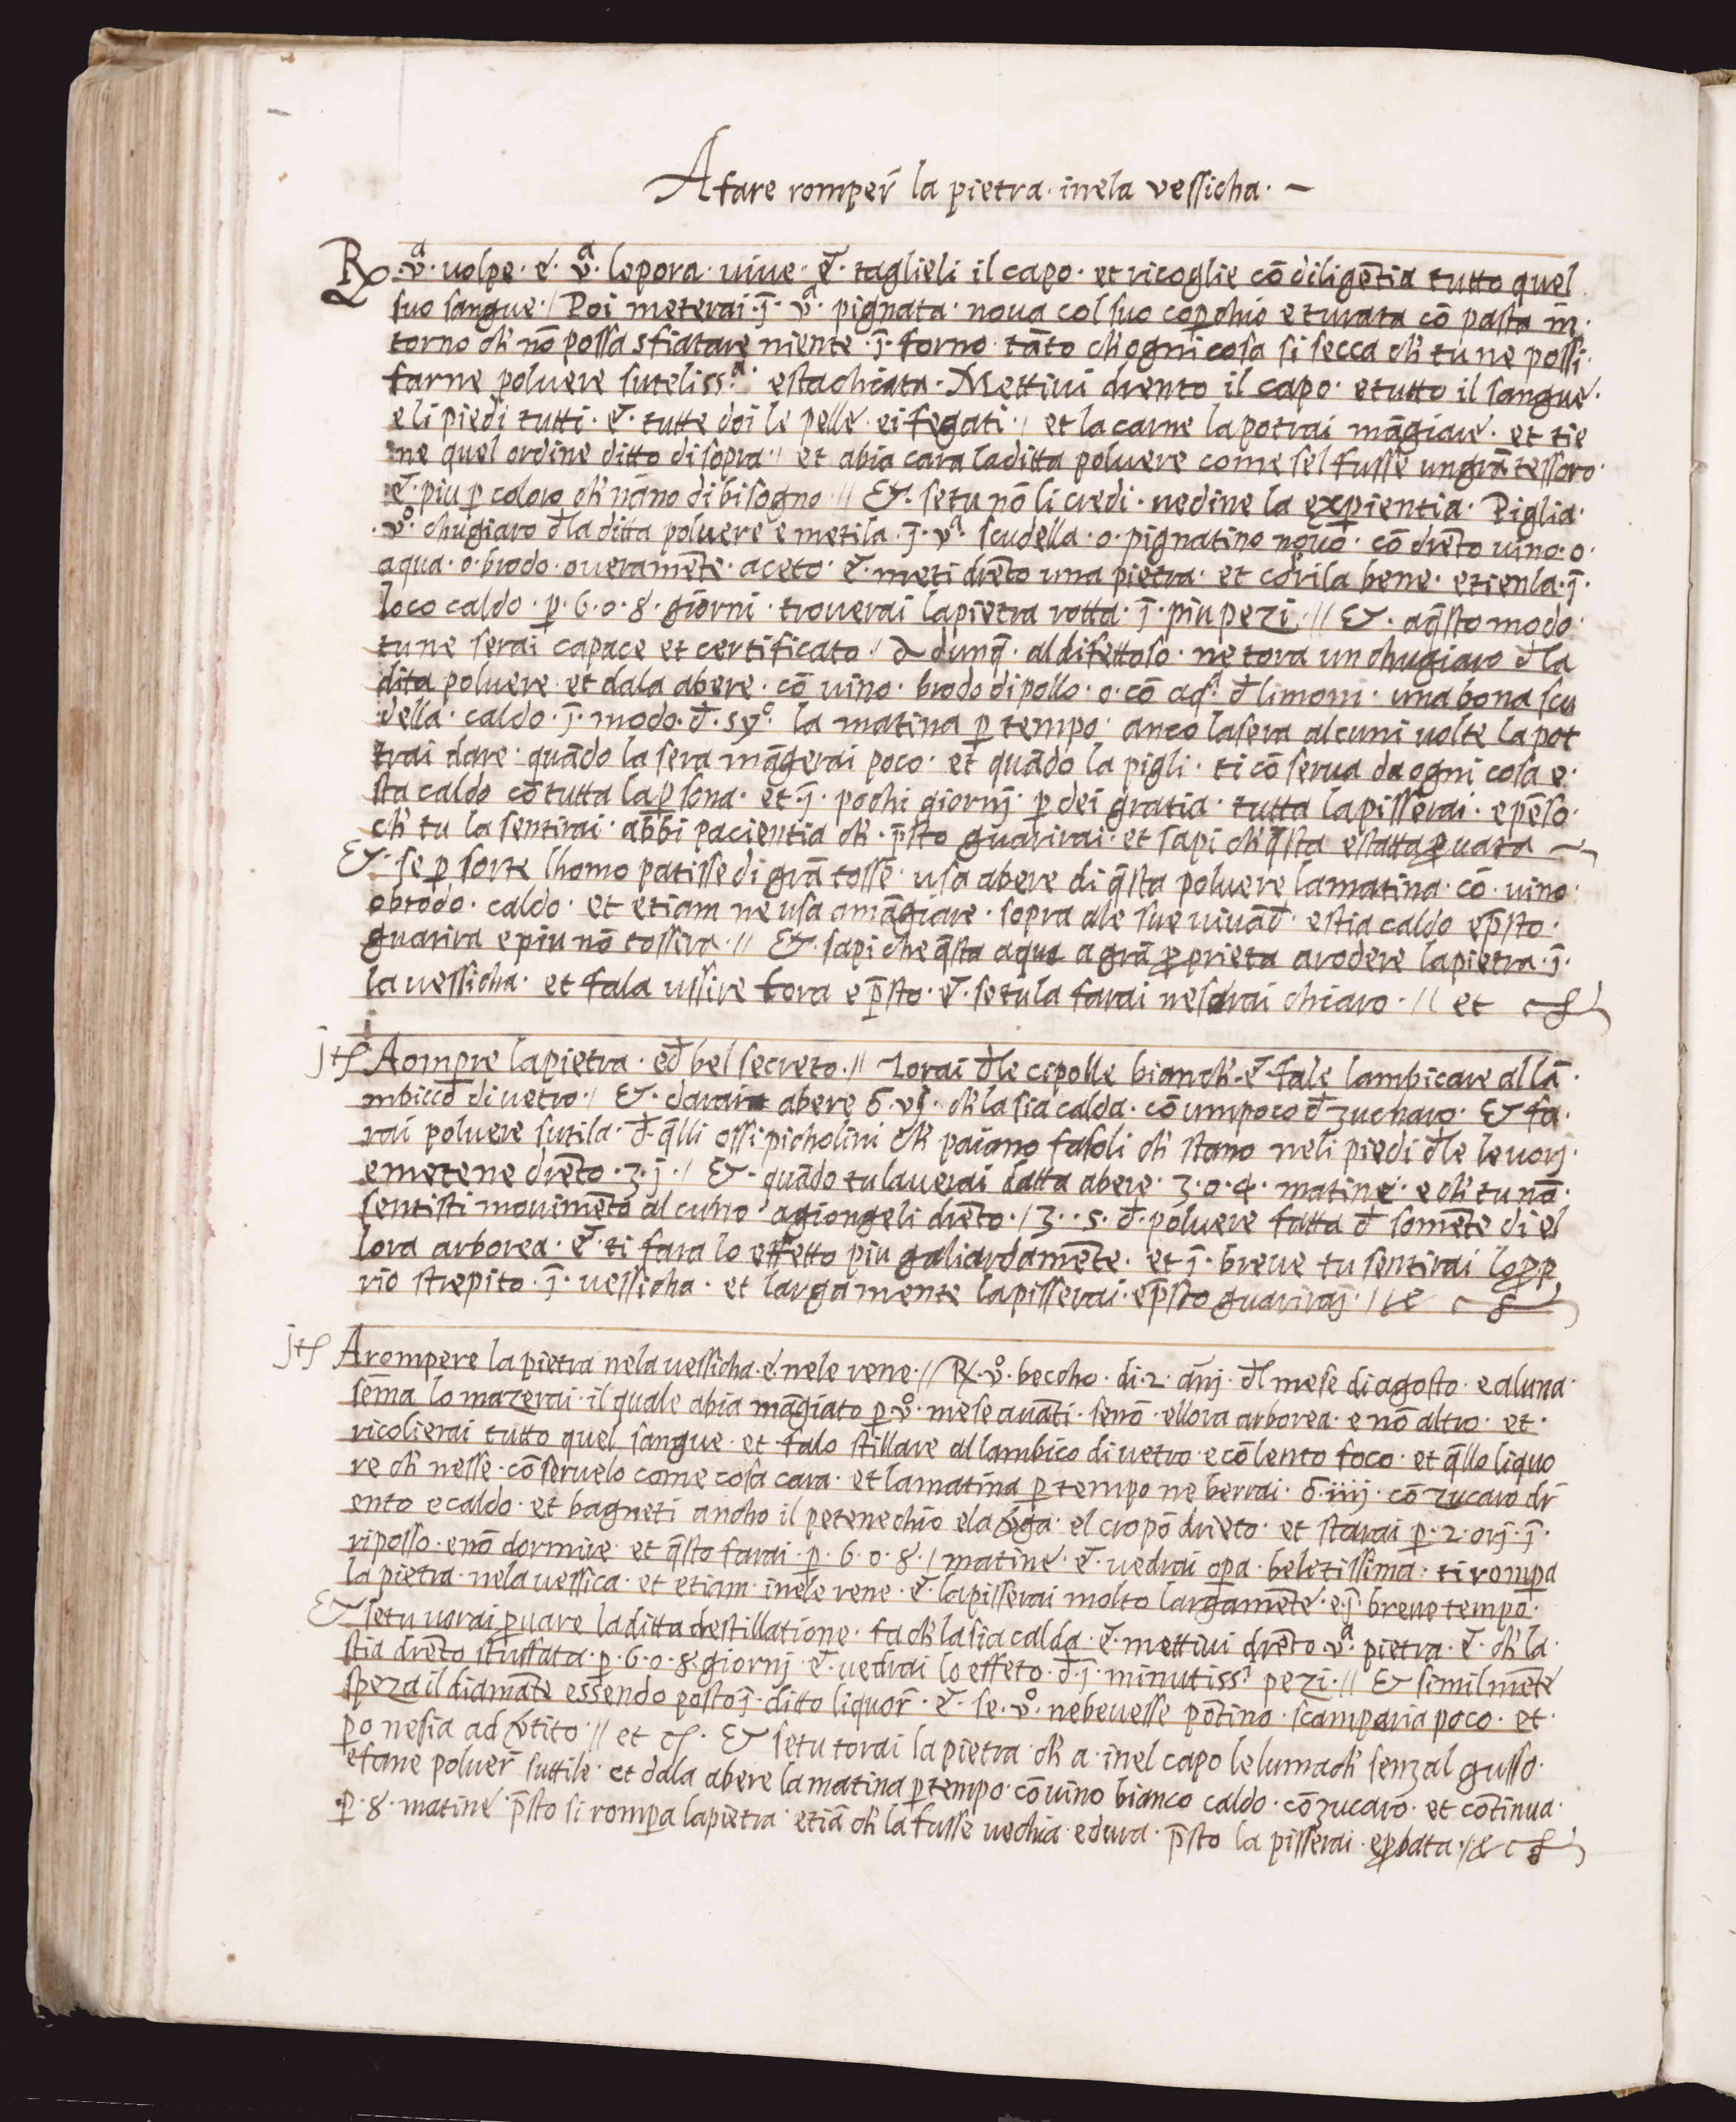 A fare romper̄ la pietra · inela vessicha · ~
℞ · vª · uolpe · e · vª · lepora · uiue · et̄ · taglieli il capo · et ricoglie cō diligētia tutto quel
suo sangue · / Poi meterai · ī · vª · pignata · noua col suo coꝑchio e turata cō pasta in
torno ch̄ nō possa sfiatare niente · ī · forno · tāto ch̄ ogni cosa si secca ch̄ tu ne possi ·
farne poluere suteliss.ª · estachiata · Mettiui drento il capo · e tutto il sangue ·
e li piedi tutti · et̄ · tutte doi le pelle · ei fegati · / et la carne la potrai māgiare · et tie
ne quel ordine ditto di sopra · / et abia cara la ditta poluere come sel fusse un grā tessoro ·
et̄ · piu ꝑ coloro ch̄ nāno di bisogno · // & · se tu nō li credi · uedine la exꝑientia · Piglia ·
· vº · chugiaro d̄la ditta poluere e metila · ī · vª · scudella · o · pignatino nouo · cō drēto uino · o ·
aqua · o · brodo · oueramēte · aceto · et̄ · meti drēto una pietra · et coꝑila bene · e tienla · ī ·
loco caldo · ꝑ · 6 · o · 8 · giorni · trouerai la pietra rotta · ī · piu pezi · // & · a q̄sto modo ·
tu ne serai capace et certificato · / Adunq̄ · al difettoso · ne tora un chugiaro d̄la
dita poluere · et dala abere · cō uino · brodo di pollo · o · cō aqª · d̄ limoni · una bona scu
della · caldo · ī · modo · d̄ · syº · la matina ꝑ tempo · anco la sera alcuni uolte la pot
trai dare · quādo la sera māgerai poco · et quādo la pigli · ti cōserua da ogni cosa e ·
sta caldo cō tutta la ꝑsona · et · ī · pochi giornj · ꝑ dei gratia · tutta la pisserai · e pēso ·
ch̄ tu la sentirai · abbi pacientia ch̄ · p̄sto guarirai · et sapi ch̄ q̄sta e statta ꝓuata ~
& · se ꝑ sorte lhomo patisse di grā tosse · usa abere di q̄sta poluere la matina · cō · uino ·
o brodo · caldo · et etiam ne usa a māgiare · sopra a le sue uiuād̄ · e stia caldo e p̄sto ·
guarira e piu nō tossira · // & · sapi che q̄sta aqua a grā ꝓprieta a rodere la pietra · ī ·
la uessicha · et fala ussire fora e p̄sto · et̄ · se tu la farai nesarai chiaro · // et
jt̄ Aompre la pietra · ed̄ bel secreto · // Torai d̄le cipolle bianch̄ · et̄ fale lambicare al lā ·
mbicco di uetro · / & · darai abere ō · vj · ch̄ la sia calda · cō un poco d̄ zucharo · & fa ·
rai poluere sutila · d̄ · q̄lli ossi picholini ch̄ paiano fasoli ch̄ stano neli piedi d̄le leuorj ·
e metene drēto · ʒ · j · / & · quādo tu lauerai datta abere · 3 · o · 4 · matine · e ch̄ tu nō ·
sentisti mouimēto alcuno · agiongeli drēto · / ʒ · · 5 · d̄ · poluere fatta d̄ somēte di el
lora arborea · et̄ · ti fara lo effetto piu galiardamēte · et · ī · breue tu sentirai lo ꝓꝑ
rio strepito · ī · uessicha · et largamente la pisserai · e p̄sto guarirai · / et
jt̄ Arompere la pietra nela uessicha · e · nele rene · // ℞ · vº · beccho · di · 2 · ānj · d̄l mese di agosto · e a luna ·
sēma lo mazerai · il quale abia māgiato ꝑ · vº · mese auāti · senō · ellora arborea · e nō altro · et ·
ricolierai tutto quel sangue · et falo stillare al lambico di uetro · e cō lento foco · et q̄llo liquo
re ch̄ nesse · cōseruelo come cosa cara · et la matina ꝑ tempo ne berrai · ō · iiij · cō zucaro dr̄
ento e caldo · et bagneti ancho il petenechio e la v̄ga · el cropō drieto · et starai ꝑ · 2 · orj · ī ·
riposso · e nō dormire · et q̄sto farai · ꝑ · 6 · o · 8 · / matine · et̄ · uedrai oꝑa · beletissima · ti rompa
la pietra · nela uessica · et etiam · inele rene · et̄ · la pisserai molto largamēte · e ī · breue tempo ·
& se tu uorai ꝓuare la ditta destillatione · fa ch̄ la sia calda · et̄ · mettiui drēto · vª · pietra · et̄ · ch̄ la ·
stia drēto stuffata · ꝑ · 6 · o · 8 · giornj · et̄ · uedrai lo effeto · d̄ · ī · minutiss.ⁱ pezi · // & similmēte
speza il diamāte essendo posto ī · ditto liquor̄ · et̄ · se · vº · ne beuesse pōtino · scamparia poco · et ·
ꝑo ne sia adv̄tito · // et & se tu torai la pietra · ch̄ a · inel capo le lumach̄ senzal gusso ·
e fane poluer̄ suttile · et dala abere la matina ꝑ tempo · cō uino bianco caldo · cō zucaro · et cōtinua ·
ꝑ · 8 · matine · p̄sto si rompa la pietra · etiā ch̄ la fusse uechia · e dura · p̄sto la pisserai · e ꝓbata · / et